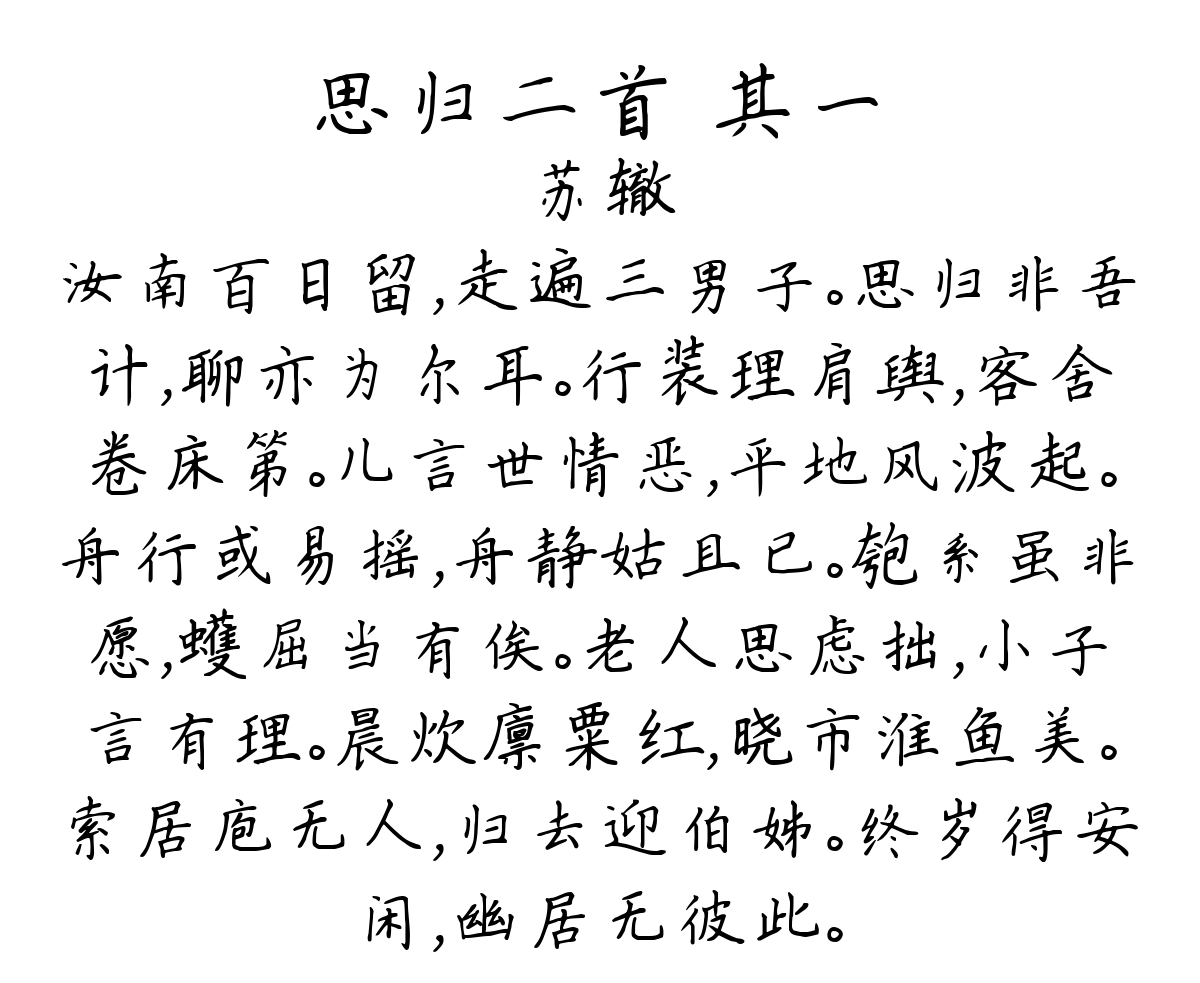 思归二首 其一
苏辙
汝南百日留,走遍三男子。思归非吾
计,聊亦为尔耳。行装理肩舆,客舍
卷床第。儿言世情恶,平地风波起。
舟行或易摇,舟静姑且已。匏系虽非
愿,蠖屈当有俟。老人思虑拙,小子
言有理。晨炊廪粟红,晓市淮鱼美。
索居庖无人,归去迎伯姊。终岁得安
闲,幽居无彼此。